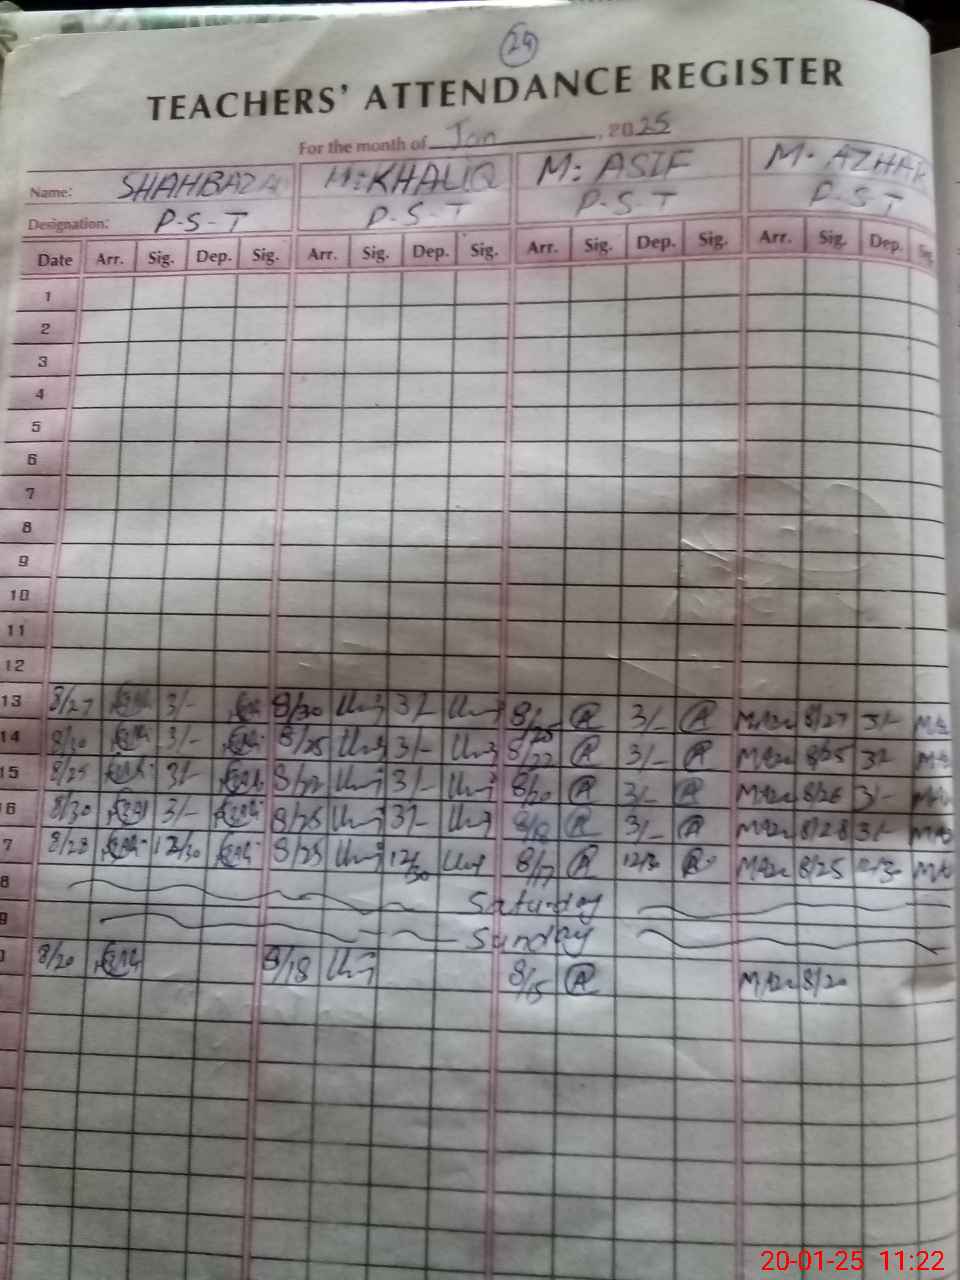 24
TEACHERS' ATTENDANCE REGISTER
For the month of Jan, 2025
Name: SHAHBAZ M: KHALIQ M: ASIF M. AZHAR
Designation: P-S-T P-S-T P-S-T P-S-T
Date Arr. Sig. Dep. Sig. Arr. Sig. Dep. Sig. Arr. Sig. Dep. Sig. Arr. Sig. Dep. Sig.
1
2
3
4
5
6
7
8
9
10
11
12
13 8/27 3/- 8/30 3/- 8/25 A 3/- A 8/27 3/-
14 8/30 3/- 8/25 3/- 8/22 A 3/- A 8/25
15 8/25 3/- 3/- 8/20 A 3/- A 8/26 3/-
6 8/30 3/- 8/25 3/- 8/18 A 3/- A 8/28 3/-
7 8/28 12/30 8/25 12/30 8/17 A 12/30 A 8/25 12/30
8 Saturday
9 Sunday
0 8/20 8/18 8/15 A 8/20
20-01-25 11:22